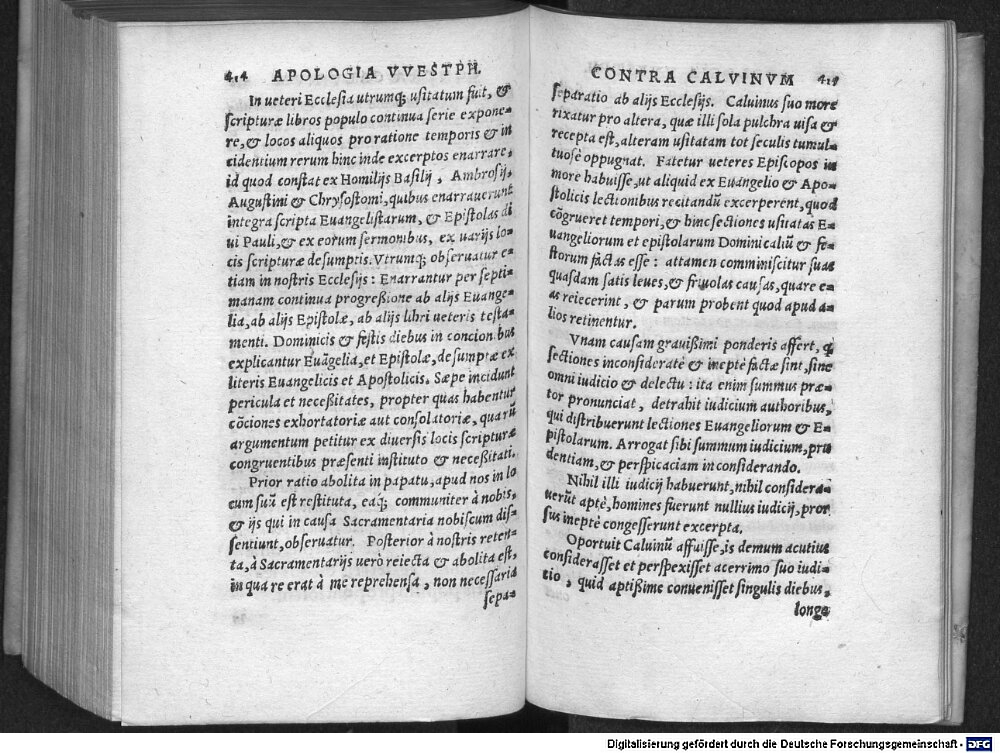 414 APOLOGIA VVESTPH.
In ueteri Ecclesia utrumq; usitatum fuit, &
scripturæ libros populo continua serie expone-
re, & locos aliquos pro ratione temporis & in
cidentium rerum hinc inde excerptos enarrare,
id quod constat ex Homilijs Basilij, Ambrosij,
Augustini & Chrysostomi, quibus enarrauerunt
integra scripta Euangelistarum, & Epistolas di
ui Pauli, & ex eorum sermonibus, ex uarijs lo-
cis scripturæ desumptis. Vtrumq; obseruatur e-
tiam in nostris Ecclesijs: Enarrantur per septi-
manam continua progreßione ab alijs Euange-
lia, ab alijs Epistolæ, ab alijs libri ueteris testa-
menti. Dominicis & festis diebus in concionibus
explicantur Euāgelia, et Epistolæ, desumptæ ex
literis Euangelicis et Apostolicis. Sæpe incidunt
pericula et neceßitates, propter quas habentur
cōciones exhortatoriæ aut consolatoriæ, quarū
argumentum petitur ex diuersis locis scripturæ
congruentibus præsenti instituto & neceßitati.
Prior ratio abolita in papatu, apud nos in lo
cum suū est restituta, eaq; communiter à nobis,
& ijs qui in causa Sacramentaria nobiscum dis-
sentiunt, obseruatur. Posterior à nostris reten-
ta, à Sacramentarijs uerò reiecta & abolita est,
in qua re erat à me reprehensa, non necessaria
sepa-
CONTRA CALVINVM 415
separatio ab alijs Ecclesijs. Caluinus suo more
rixatur pro altera, quæ illi sola pulchra uisa &
recepta est, alteram usitatam tot seculis tumul-
tuosè oppugnat. Fatetur ueteres Episcopos in
more habuisse, ut aliquid ex Euangelio & Apo-
stolicis lectionibus recitandū excerperent, quod
cōgrueret tempori, & hinc sectiones usitatas E-
uangeliorum et epistolarum Dominicaliū & fe-
storum factas esse: attamen comminiscitur suas
quasdam satis leues, & friuolas causas, quare e-
as reiecerint, & parum probent quod apud a-
lios retinentur.
Vnam causam grauißimi ponderis affert, q̈
sectiones inconsideratè & ineptè factæ sint, sine
omni iudicio & delectu: ita enim summus præ-
tor pronunciat, detrahit iudicium authoribus,
qui distribuerunt lectiones Euangeliorum & E-
pistolarum. Arrogat sibi summum iudicium, pru
dentiam, & perspicaciam in considerando.
Nihil illi iudicij habuerunt, nihil considera-
uerūt aptè, homines fuerunt nullius iudicij, pror
sus ineptè congesserunt excerpta.
Oportuit Caluinū affuisse, is demum acutius
considerasset et perspexisset acerrimo suo iudi-
cio, quid aptißime conuenisset singulis diebus,
longe
Digitalisierung gefördert durch die Deutsche Forschungsgemeinschaft - DFG